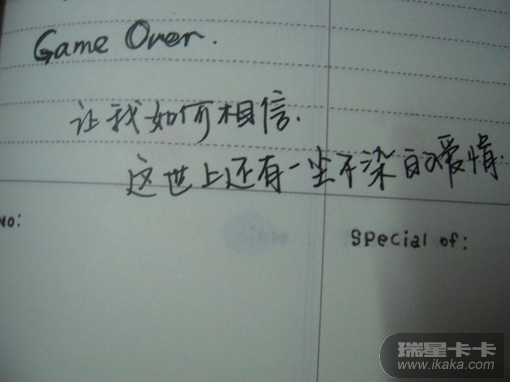 Game Over.
让我如何相信.
这世上还有一尘不染的爱情.
No:
Special of:
瑞星卡卡
www.ikaka.com